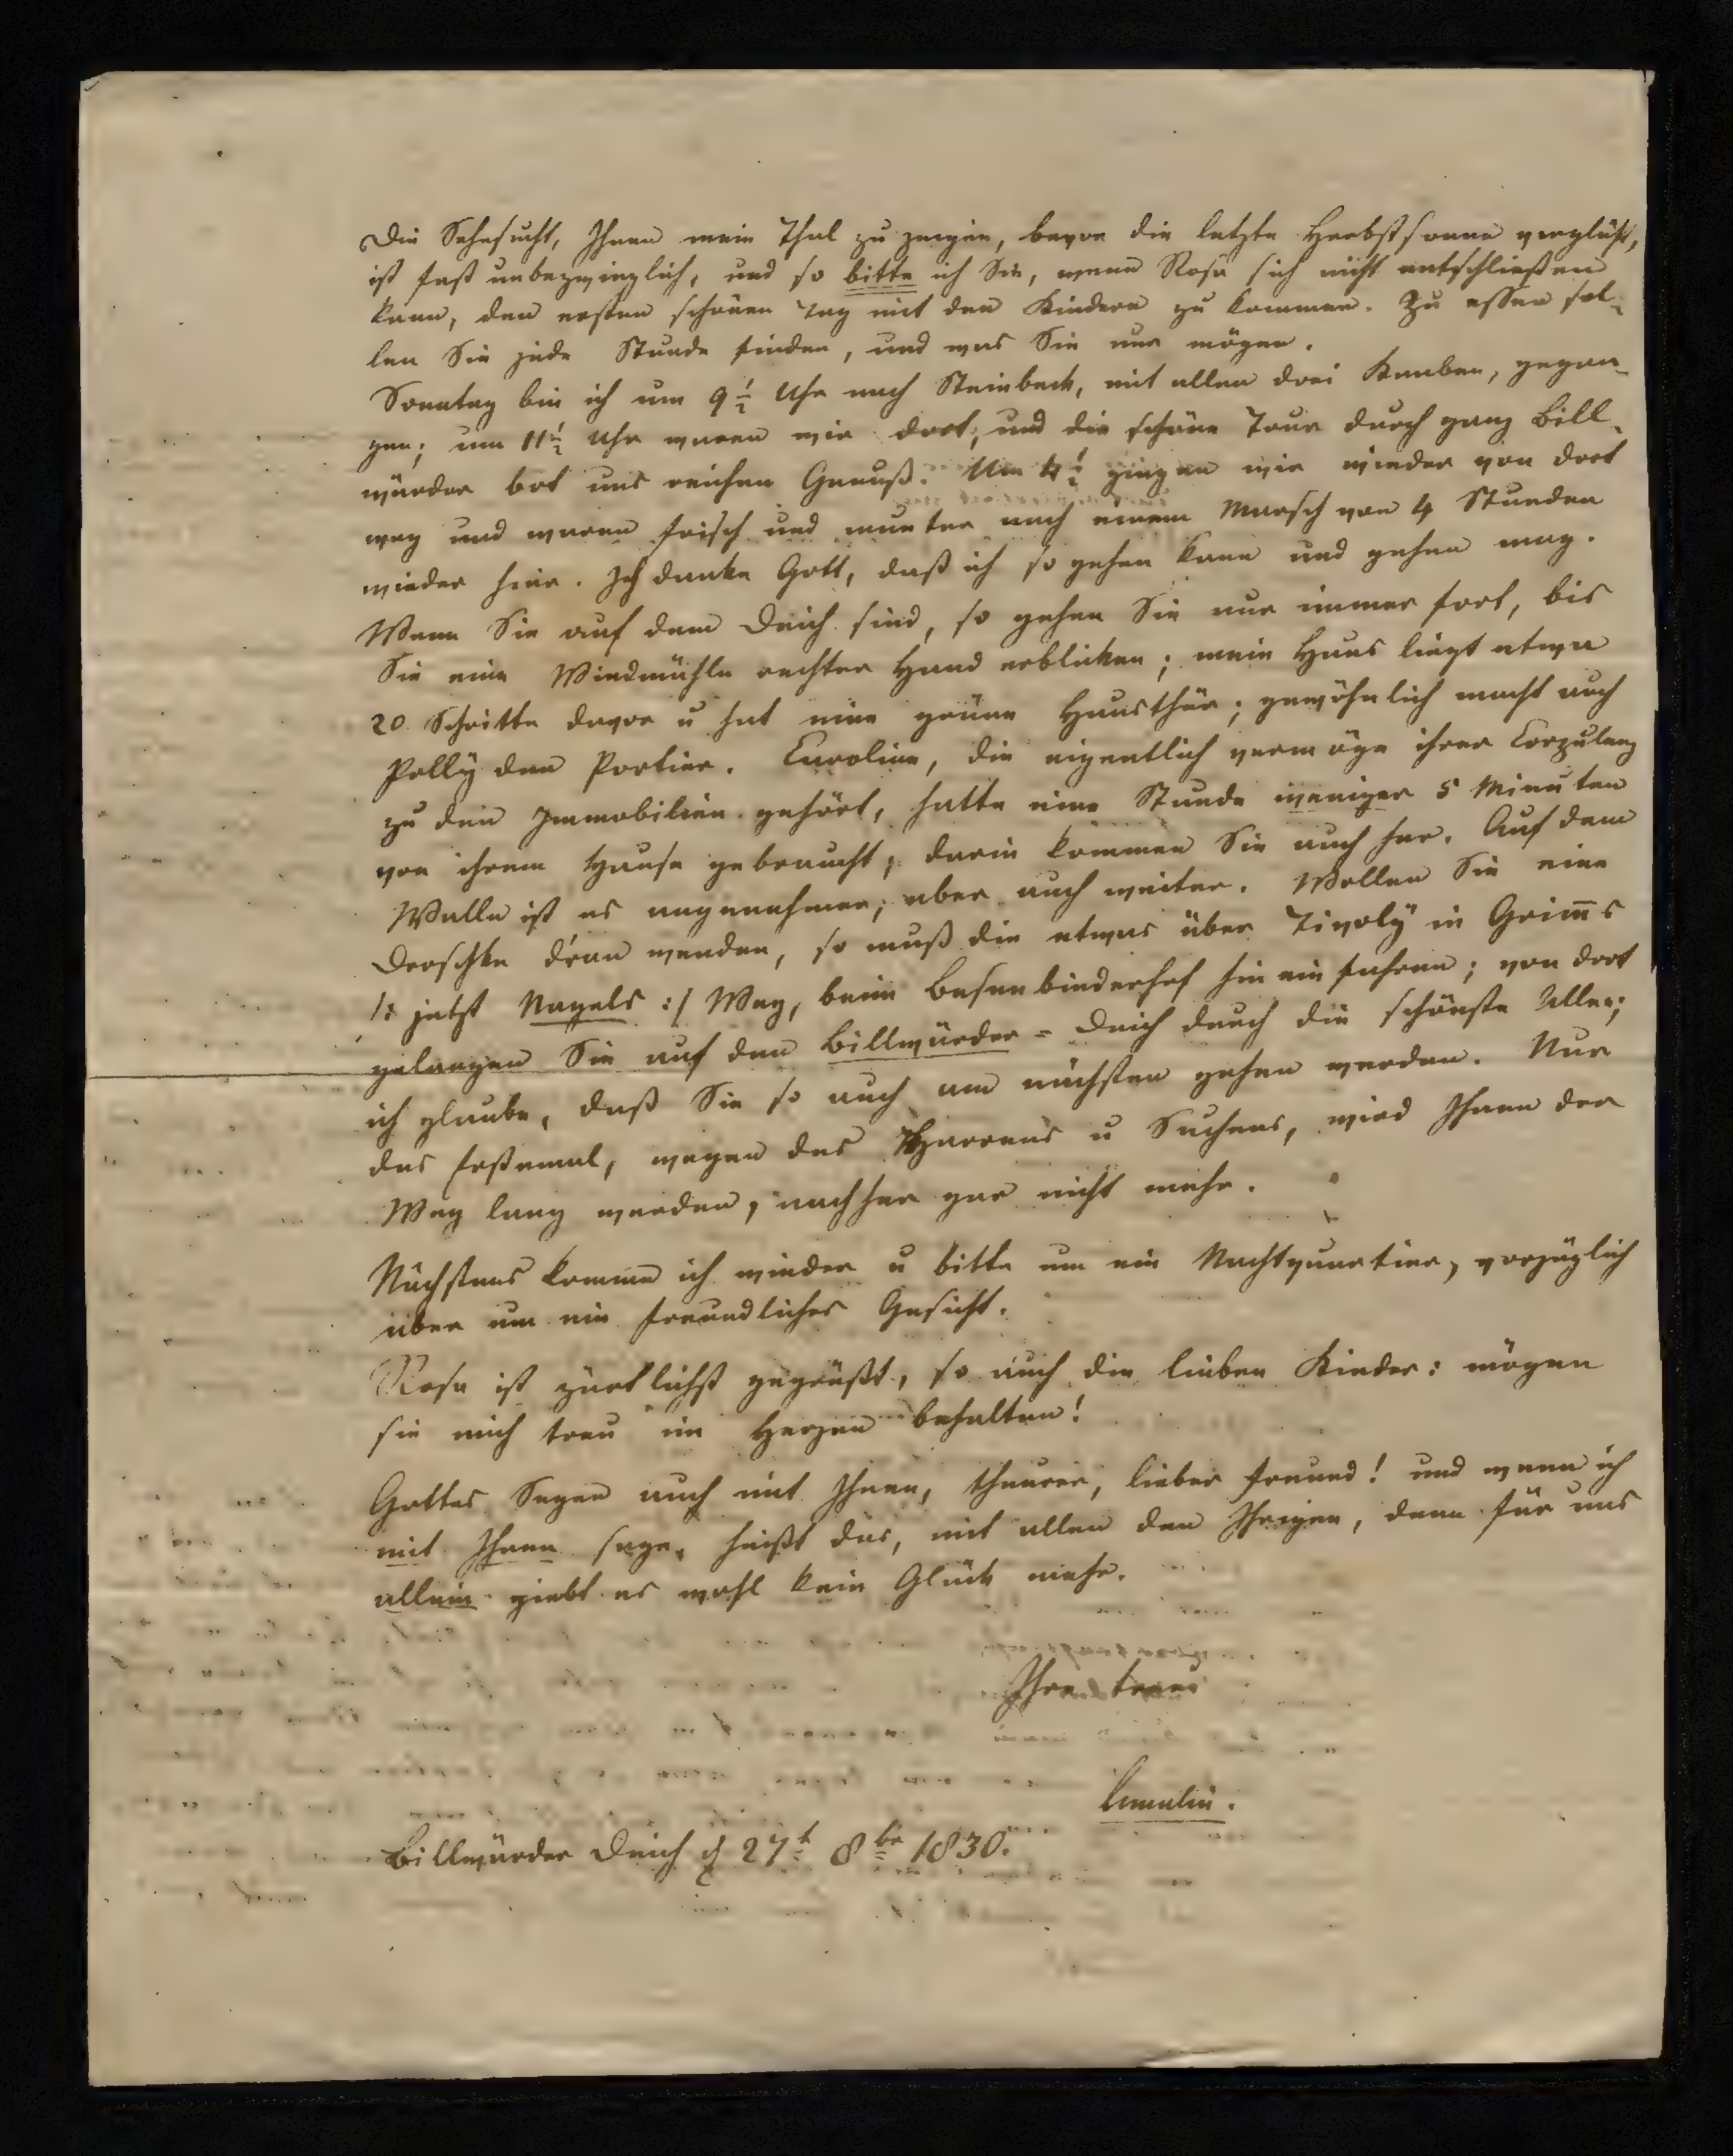 Die Sehnsucht, Ihnen mein Thal zu zeigen, bevor die letzte Herbstsonne verglüht,
ist fast unbezwinglich, und so bitte ich Sie, wenn Rosa sich nicht entschließen
kann, den ersten schönen Tag mit den Kindern zu kommen. Zu essen sol-
len Sie jede Stunde finden, und was Sie nur mögen.
Sonntag bin ich um 9 1/2 Uhr nach Steinbeck, mit allen drei Knaben, gegan-
gen; um 11 1/2 Uhr waren wir dort, und die schöne Tour durch ganz Bill-
wärder bot uns reichen Genuß. Um 4 1/2 gingen wir wieder von dort
weg und waren frisch und munter nach einem Marsch von 4 Stunden
wieder hier. Ich danke Gott, daß ich so gehen kann und gehen mag.
Wenn Sie auf dem Deich sind, so gehen Sie nur immer fort, bis
Sie eine Windmühle rechter Hand erblicken; mein Haus liegt etwa
20 Schritte davor u hat eine grüne Hausthür; gewöhnlich macht auch
Polly den Portier. Caroline, die eigentlich vermöge ihrer Corpulenz
zu den Immobilien gehört, hatte eine Stunde weniger 5 Minuten
von ihrem Hause gebraucht; darin kommen Sie auch her. Auf dem
Walle ist es angenehmer, aber auch weiter. Wollen Sie eine
Droschke d'ran wenden, so muß die etwas über Tivoly in Grim̅s
/: jetzt Nagels :/ Weg, beim Besenbinderhof hineinfahren; von dort
gelangen Sie auf den Billwärder-Deich durch die schönste Allee;
ich glaube, daß Sie so auch am nächsten gehen werden. Nur
das erstemal, wegen des Harrens u Suchens, wird Ihnen der
Weg lang werden, nachher gar nicht mehr.
Nächstens komme ich wieder u bitte um ein Nachtquartier, vorzüglich
aber um ein freundliches Gesicht.
Rosa ist zärtlichst gegrüßt, so auch die lieben Kinder: mögen
sie mich treu im Herzen behalten!
Gottes Segen auch mit Ihnen, theurer, lieber Freund! und wenn ich
mit Ihnen sage, heißt das, mit allen den Ihrigen, denn für uns
allein giebt es wohl kein Glück mehr.
Ihre treue
Amalia.
Billwärder Deich d 27t 8br 1830.